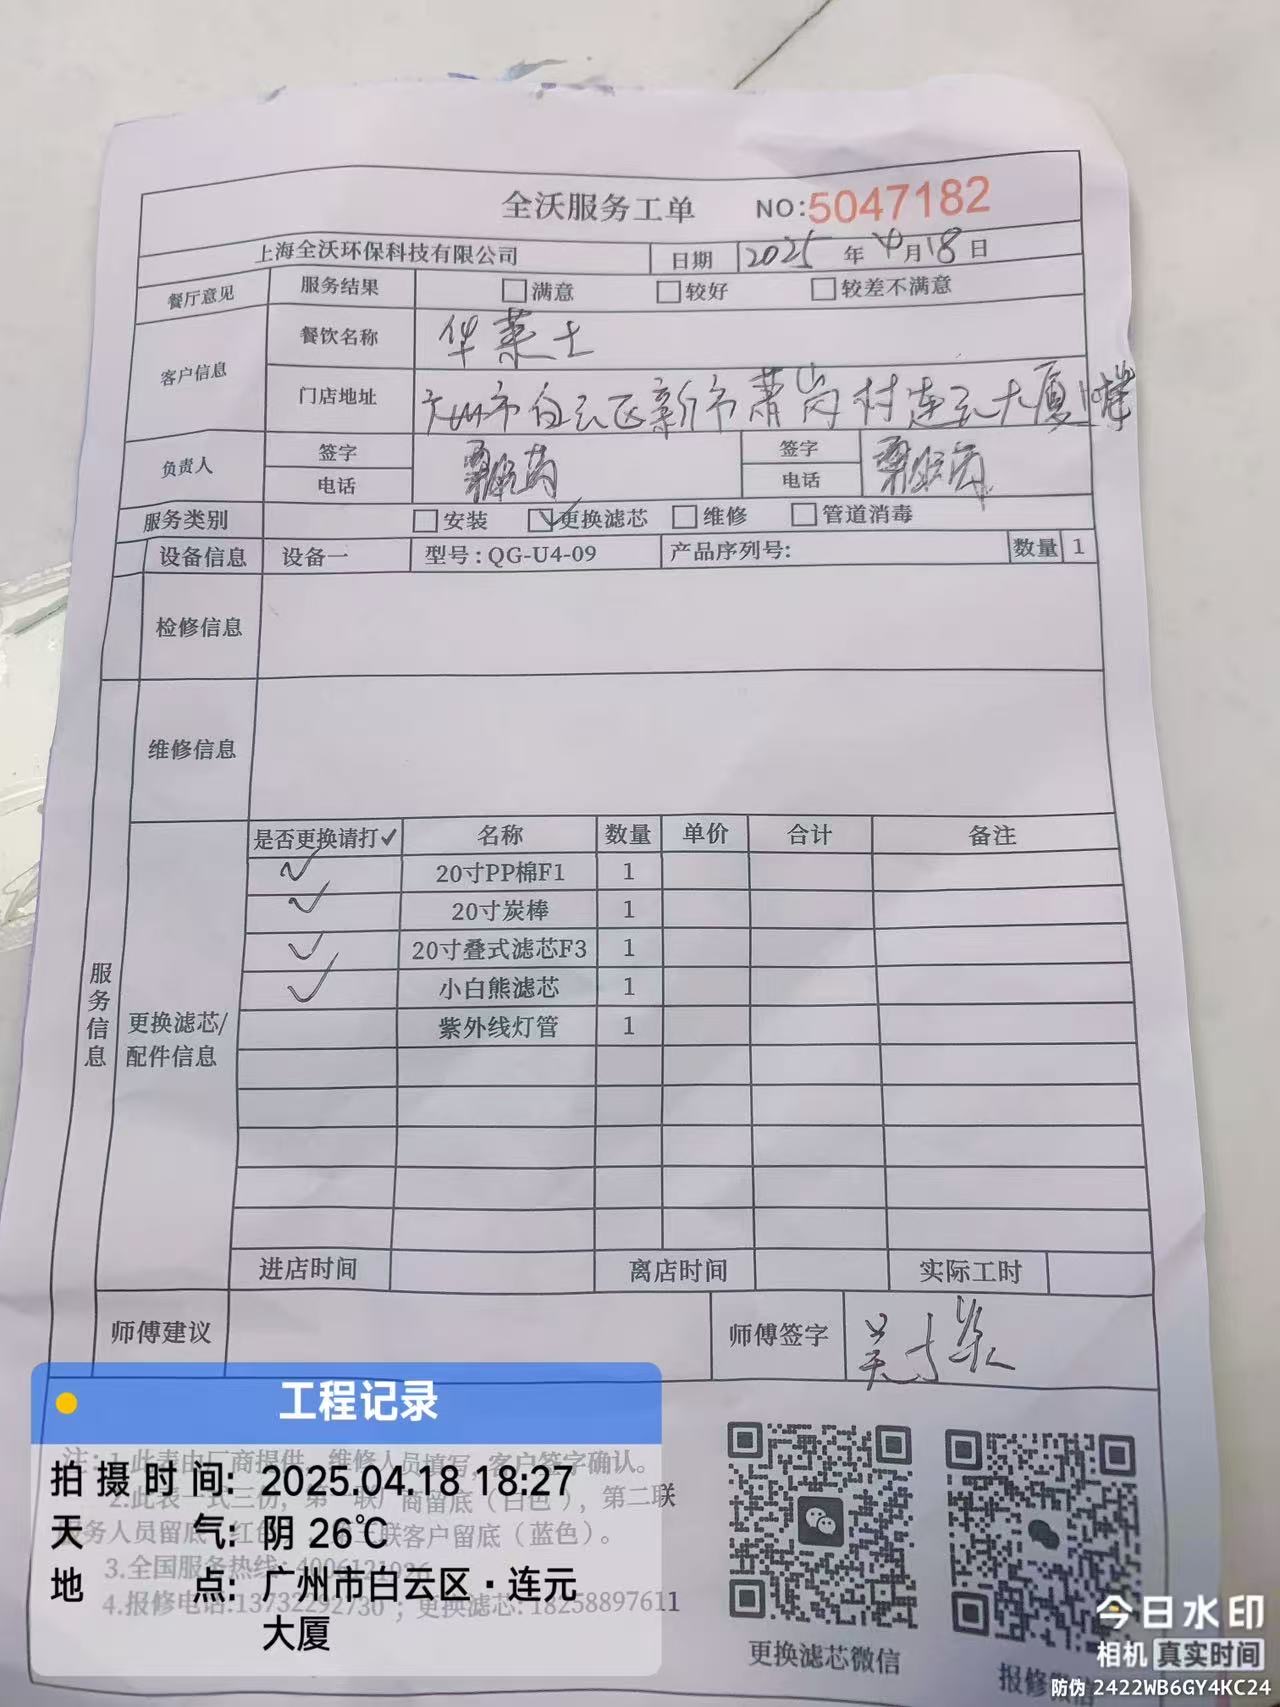 全沃服务工单 NO:5047182
上海全沃环保科技有限公司 日期 2025年4月18日
餐厅意见 服务结果 满意 较好 较差不满意
客户信息 餐饮名称 华莱士
门店地址 广州市白云区新市萧岗村连云大厦
负责人 签字 签字
电话 电话
服务类别 安装 更换滤芯 维修 管道消毒
设备信息 设备一 型号:QG-U4-09 产品序列号: 数量 1
检修信息
维修信息
服务信息
更换滤芯/
配件信息
是否更换请打✓ 名称 数量 单价 合计 备注
✓ 20寸PP棉F1 1
✓ 20寸炭棒 1
✓ 20寸叠式滤芯F3 1
✓ 小白熊滤芯 1
紫外线灯管 1
进店时间 离店时间 实际工时
师傅建议 师傅签字
工程记录
注:1.此表由厂商提供，维修人员填写,客户签字确认。
拍摄时间: 2025.04.18 18:27
2.此表一式三份，第一联厂商留底（白色），第二联
服务人员留底 红色 三联客户留底（蓝色）。
天气: 阴 26℃
3.全国服务热线:4006121926
地点: 广州市白云区·连元
大厦
4.报修电话:13732292730；更换滤芯:18258897611
更换滤芯微信
今日水印
相机 真实时间
防伪 2422WB6GY4KC24